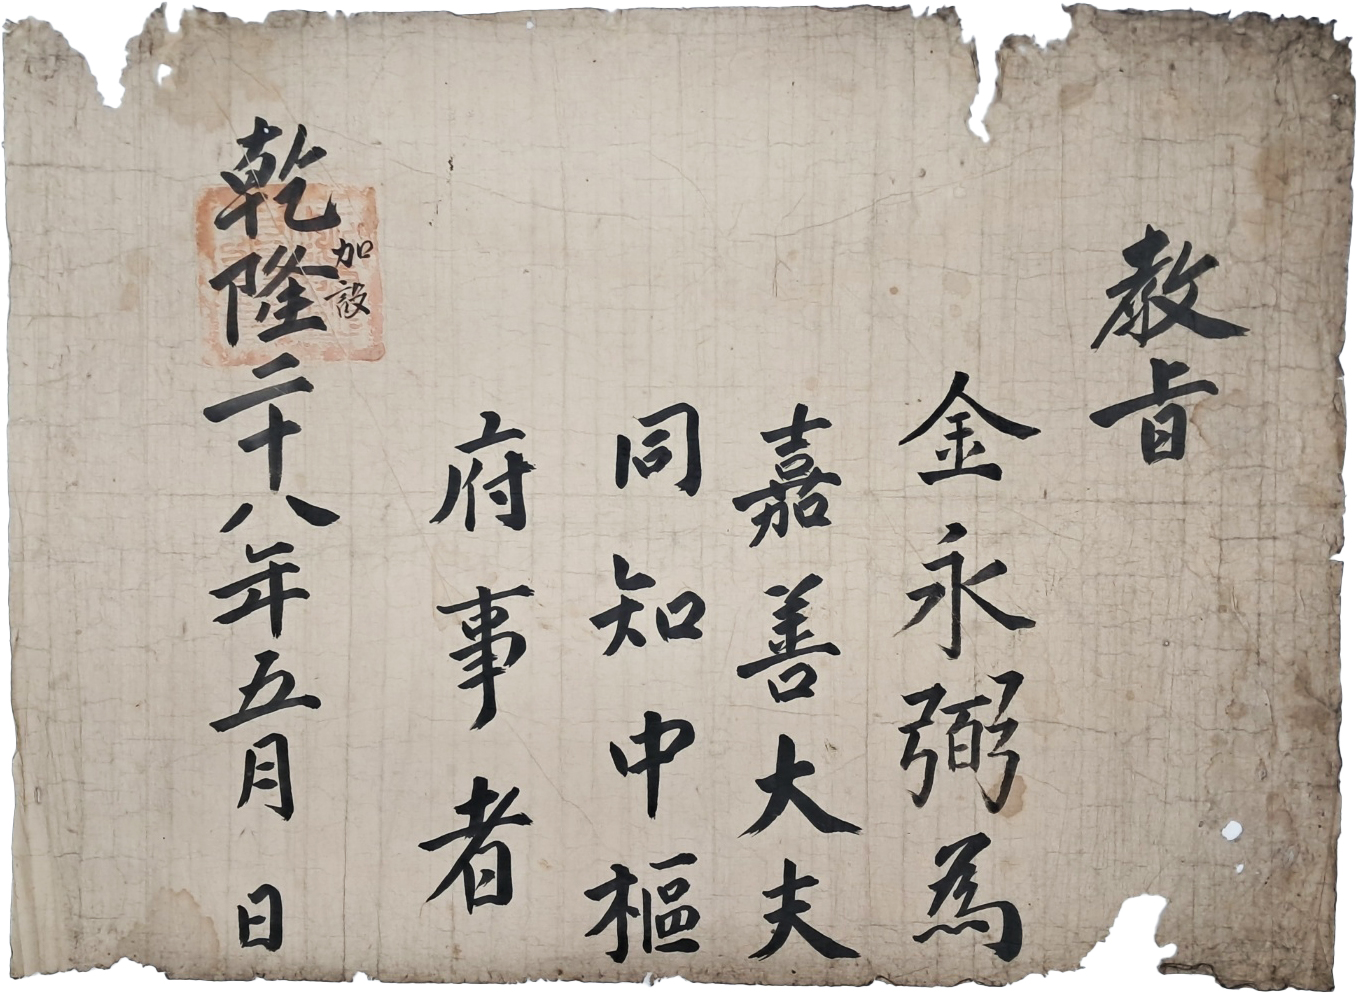 教旨
金永弼為
嘉善大夫
同知中樞
府事者
乾隆二十八年五月 日
加設